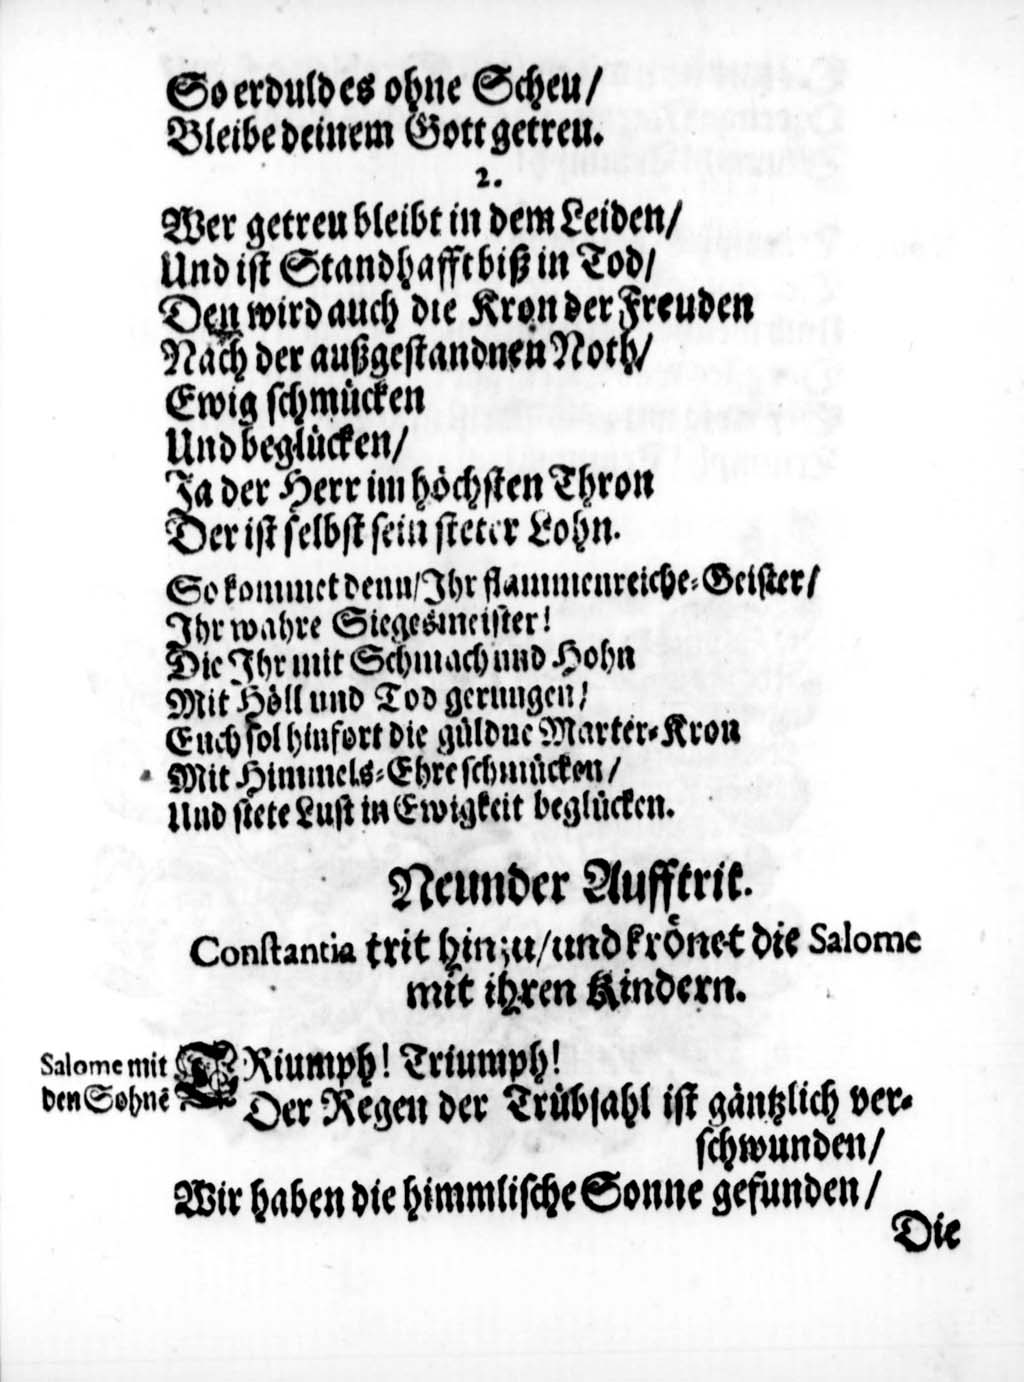 So erduld es ohne Scheu/
Bleibe deinem Gott getreu.
2.
Wer getreu bleibt in dem Leiden/
Und ist Standhafft biß in Tod/
Den wird auch die Kron der Freuden
Nach der außgestandnen Noth/
Ewig schmücken
Und beglücken/
Ja der Herr im höchsten Thron
Der ist selbst sein steter Lohn.
So kommet denn/Ihr flammenreiche-Geister/
Ihr wahre Siegesmeister!
Die Ihr mit Schmach und Hohn
Mit Höll und Tod gerungen!
Euch sol hinfort die güldne Marter-Kron
Mit Himmels-Ehre schmücken/
Und stete Lust in Ewigkeit beglücken.
Neunder Aufftrit.
Constantia trit hinzu/und krönet die Salome
mit ihren Kindern.
Salome mit
den Sohnē
TRiumph! Triumph!
Der Regen der Trübsahl ist gäntzlich ver-
schwunden/
Wir haben die himmlische Sonne gefunden/
Die